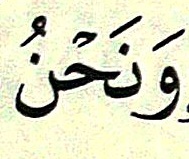 وَنَحۡنُ